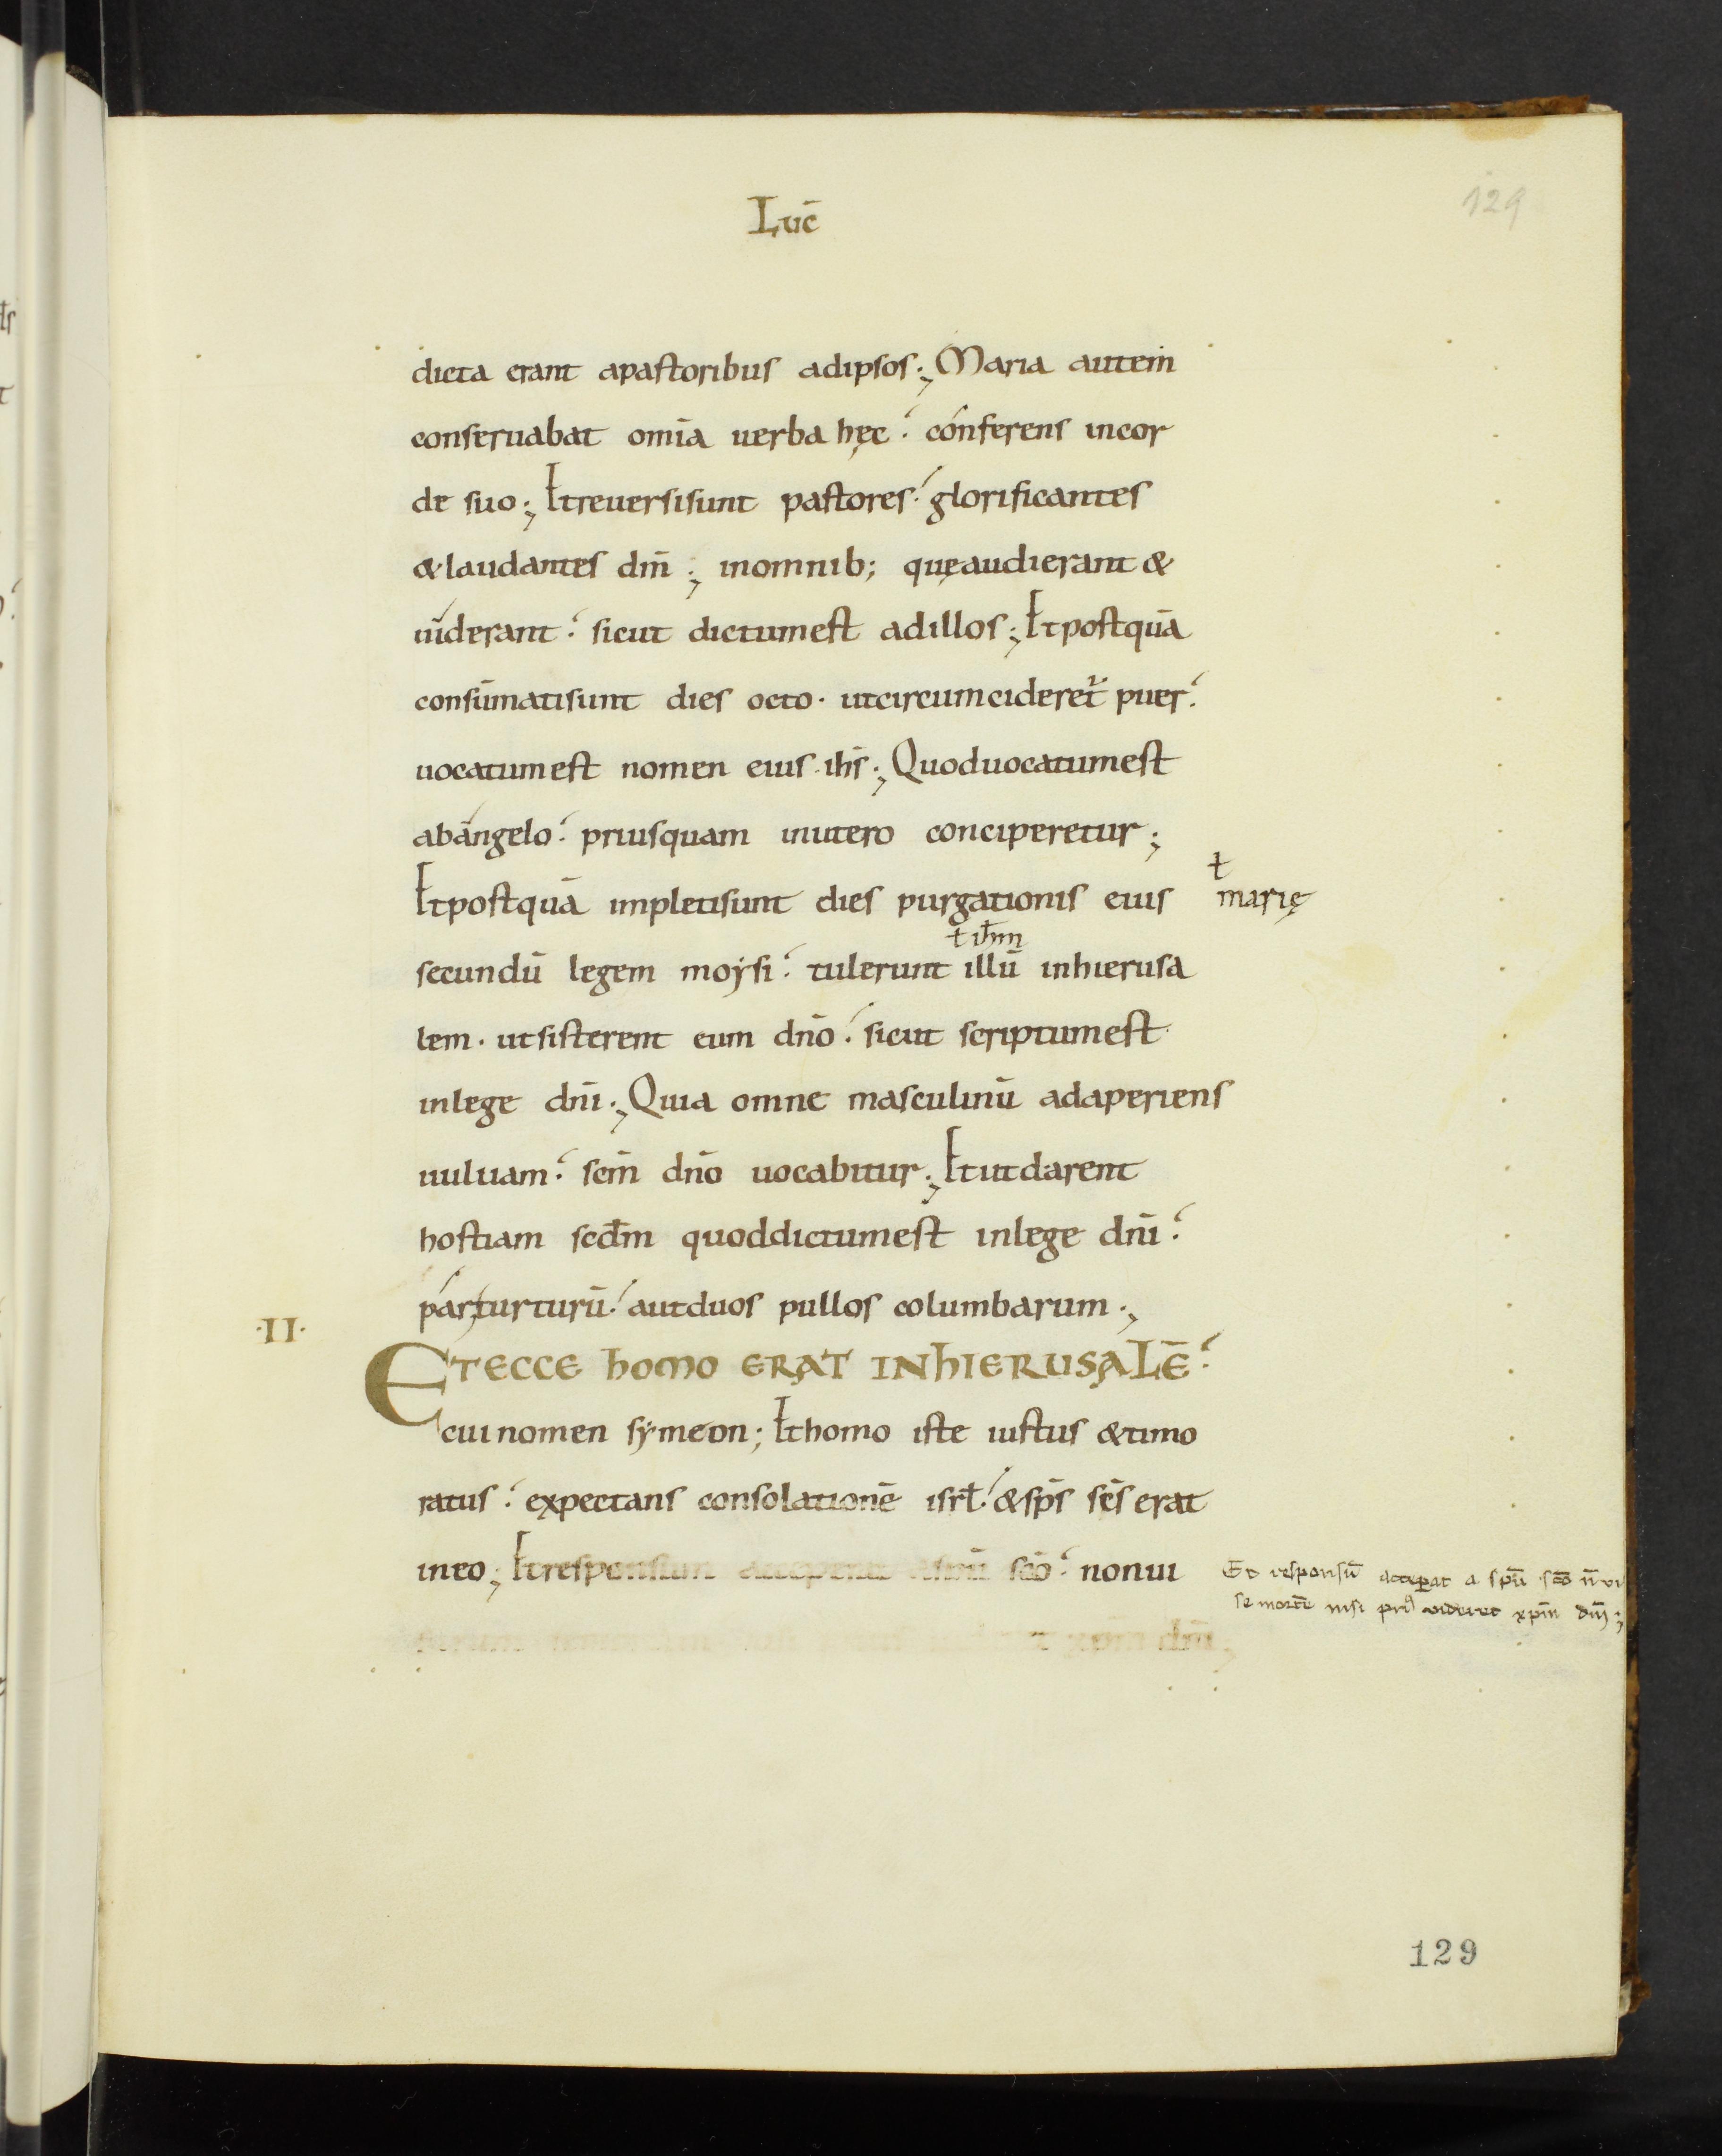 129
Luc̄
dicta erant apastoribus adipsos; Maria autem
conseruabat om̄ia uerba hęc: cónferens incor
de suo; Etreuersisunt pastores: glorificantes
&laudantes dm̄; inomnib; quęaudierant &
uíderant: sicut dictumest adillos; Etpostquā
consūmatisunt dies octo. utcircumcideret̄ puer:
uocatumest nomen eius ihs̄; Quoduocatumest
abángelo: priusquam inutero conciperetur;
Etpostquā impletisunt dies purgationis eius ł marię
ł ihm̄
secundū legem moẏsi: tulerunt illū inhierusa
lem. utsisterent eum dn̄o: sicut scriptumest
inlege dn̄i; Quia omne masculinū adaperiens
uuluam: scm̄ dn̄o uocabitur; Etutdarent
hostiam scdm̄ quoddictumest inlege dn̄i:
párturturū: autduos pullos columbarum;
.II.
ETECCE HOMO ERAT INHIERUSALĒ:
cuinomen sẏmeon; Ethomo iste iustus &timo
ratus: expectans consolationē isrł: &sps̄ scs̄ erat
ineo; Etresponsum sc̄o: nonui
Et responsū acceꝑat a spū sc̄o n̄ ui
xpm̄ dm̄;
se mortē nisi pri᾽ uideret xpm̄ dm̄;
129